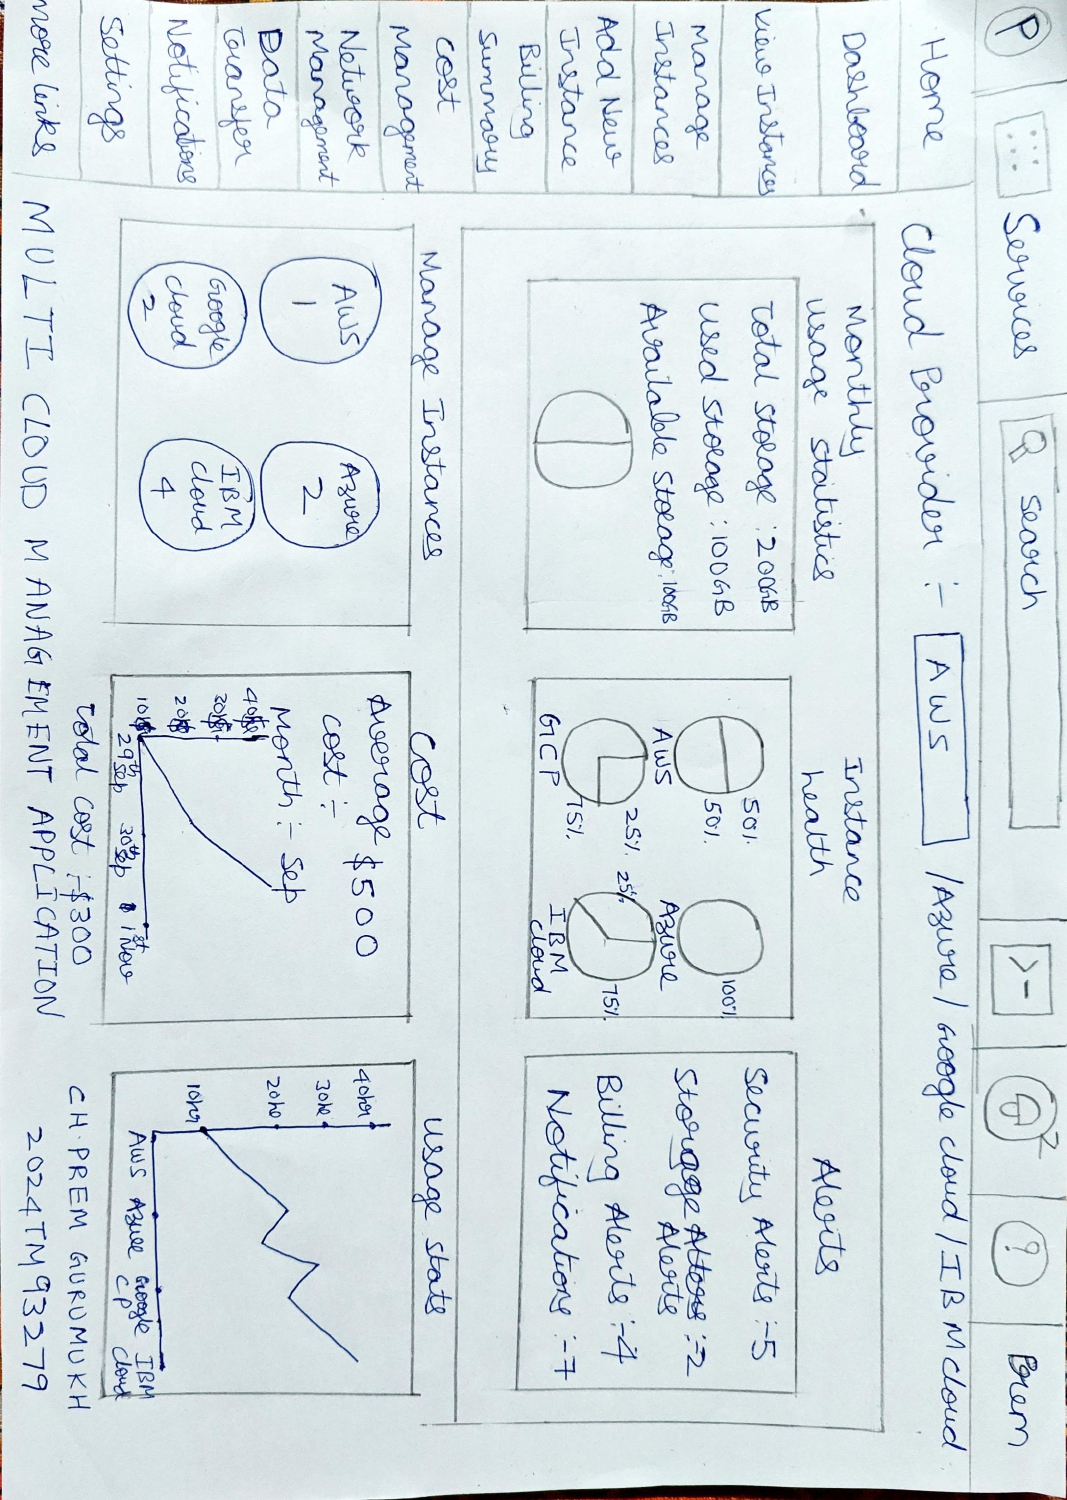 P
Services
Search
>-
?
Prem
Home
Dashboard
View Instances
Manage
Instances
Add New
Instance
Billing
Summary
Cost
Management
Network
Management
Data
Transfer
Notifications
Settings
more links
Cloud Provider :- AWS /Azure/Google cloud/IBM cloud
Monthly
usage statistics
Total storage : 200GB
Used Storage : 100GB
Available Storage : 100GB
Instance
health
50%
50%
AWS
100%
Azure
25%
75%
GCP
25%
75%
IBM
cloud
Alerts
Security Alerts :-5
Storage :-2
Alerts
Billing Alerts :-4
Notifications :-7
Manage Instances
AWS
1
Azure
2
Google
cloud
2
IBM
cloud
4
Cost
Average $500
cost :-
Month :- Sep
40
30
20
10
29th
Sep
30th
Sep
1st
Nov
Total cost :-$300
Usage Stats
40hr
30hr
20hr
10hr
AWS Azure Google IBM
CP cloud
CH. PREM GURUMUKH
MULTI CLOUD MANAGEMENT APPLICATION
2024TM93279